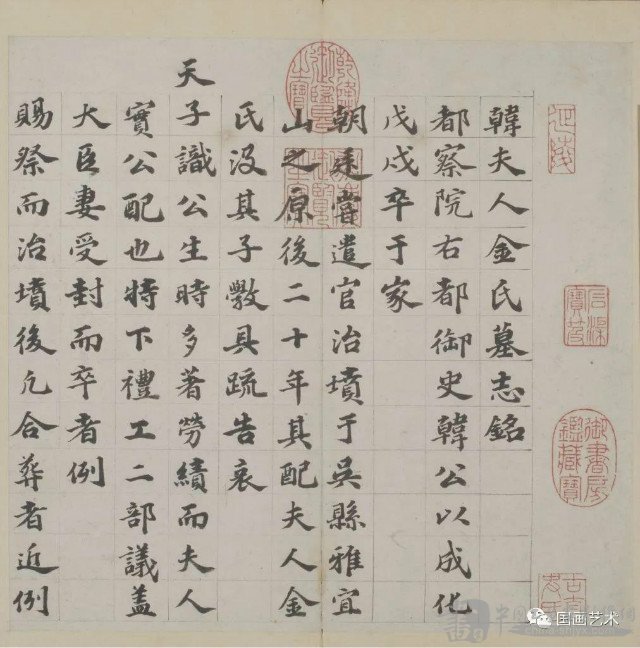 韓夫人金氏墓志銘
都察院右都御史韓公以成化
戊戌卒于家
朝廷嘗遣官治墳于吳縣雅宜
山之原後二十年其配夫人金
氏没其子斆具疏告哀
天
子識公生時多著勞績而夫人
實公配也特下禮工二部議蓋
大臣妻受封而卒者例
賜祭而治墳後凢合葬者近例
御書房
鑑藏寶
国画艺术